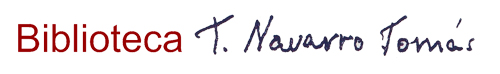 Biblioteca T. Navarro Tomás